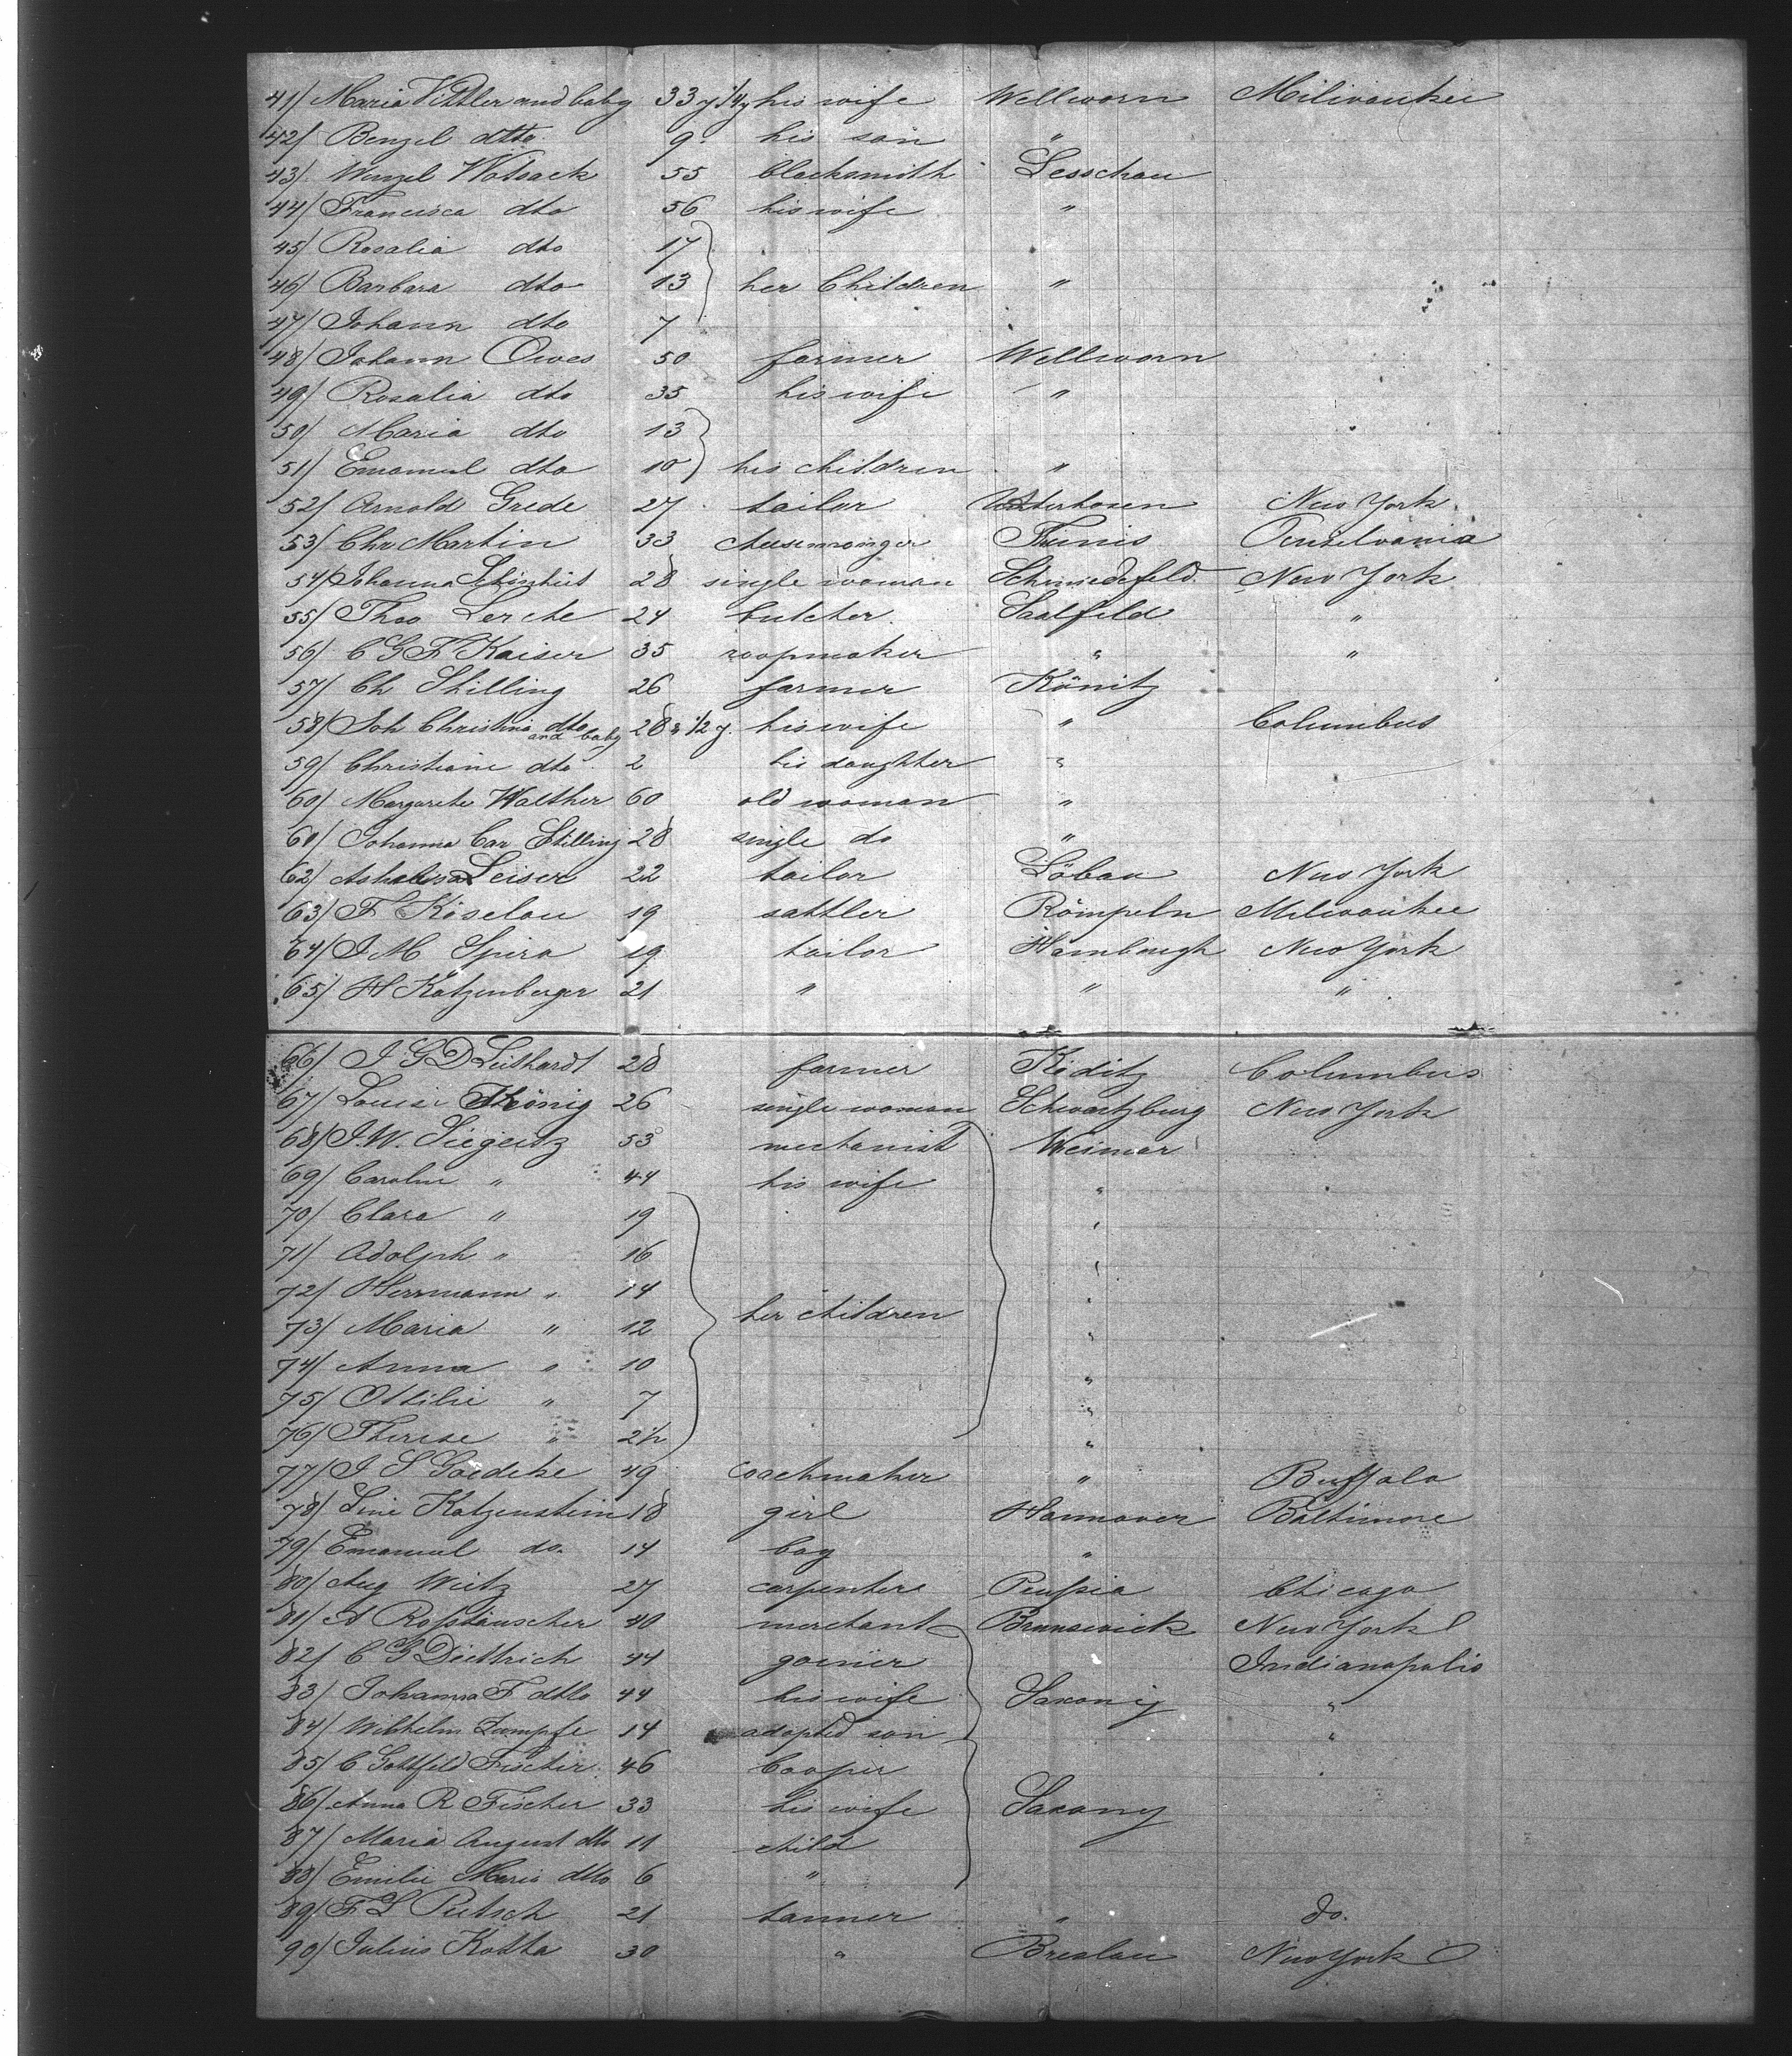 41/ Maria Vittler and baby 33 y 1/4 y his wife Wellworn Miliwaukee
42/ Benzel dtto 9 his son "
43/ Wenzel Watsack 55 blacksmith Lesschau
44/ Francisca dto 56 his wife "
45/ Rosalia dto 17
46/ Barbara dto 13 her Children "
47/ Johann dto 7
48/ Johann Owes 50 farmer Wellworn
49/ Rosalia dto 35 his wife "
50/ Maria dto 13
51/ Emanuel dto 10 his children "
52/ Arnold Grede 27 tailor New York
53/ Chr Martin 33 cheesemonger Thunis Pensilvania
54/ Johanna 28 single woman Schmiedefeld New York
55/ Theo Lerche 24 butcher Saalfeld "
56/ C G F Kaiser 35 roopmaker " "
57/ Ch Shilling 26 farmer Könitz
58/ Joh Christina dtto and baby 28 " 1/2 y. his wife " Columbus
59/ Christiane dto 2 his daughter "
60/ Margarete Walther 60 old woman "
61/ Johanna Car Shilling 28 single do "
62/ Leiser 22 tailor Löbau New York
63/ F Koselau 19 sattler Römpeln Milwaukee
64/ J M Spira 19 tailor Hamburgh New York
65/ H Katzenberger 21 " " "
66/ J G D Leithardt 28 farmer Köditz Columbus
67/ Louise König 26 single woman Schwartzburg New York
68/ J. W. Siegeitz 53 mechanist Weimar
69/ Caroline " 44 his wife "
70/ Clara " 19 "
71/ Adolph " 16 "
72/ Herrmann " 14 "
73/ Maria " 12 her children "
74/ Anna " 10 "
75/ Ottilie " 7 "
76/ Therese " 2 1/2 "
77/ J S Goedeke 49 coachmaker " Buffalo
78/ Line Katzenstein 18 girl Hannover Baltimore
79/ Emanuel do. 14 boy "
80/ Aug Wietz 27 carpenter Prussia Chicago
81/ A Rosstäuscher 40 merchant Brunswick New York
82/ C G Diettrich 44 goinier Indianapolis
83/ Johanna F dtto 44 his wife Saxony "
84/ Wilhelm Zumpfe 14 adopted son "
85/ C Gottfeld Fischer 46 Cooper
86/ Anna R Fischer 33 his wife Saxony
87/ Maria August dto 11 child
88/ Emilie Marie dtto 6 "
89/ F L Pietsch 21 tanner " do.
90/ Julius Kotta 30 " Breslau New York